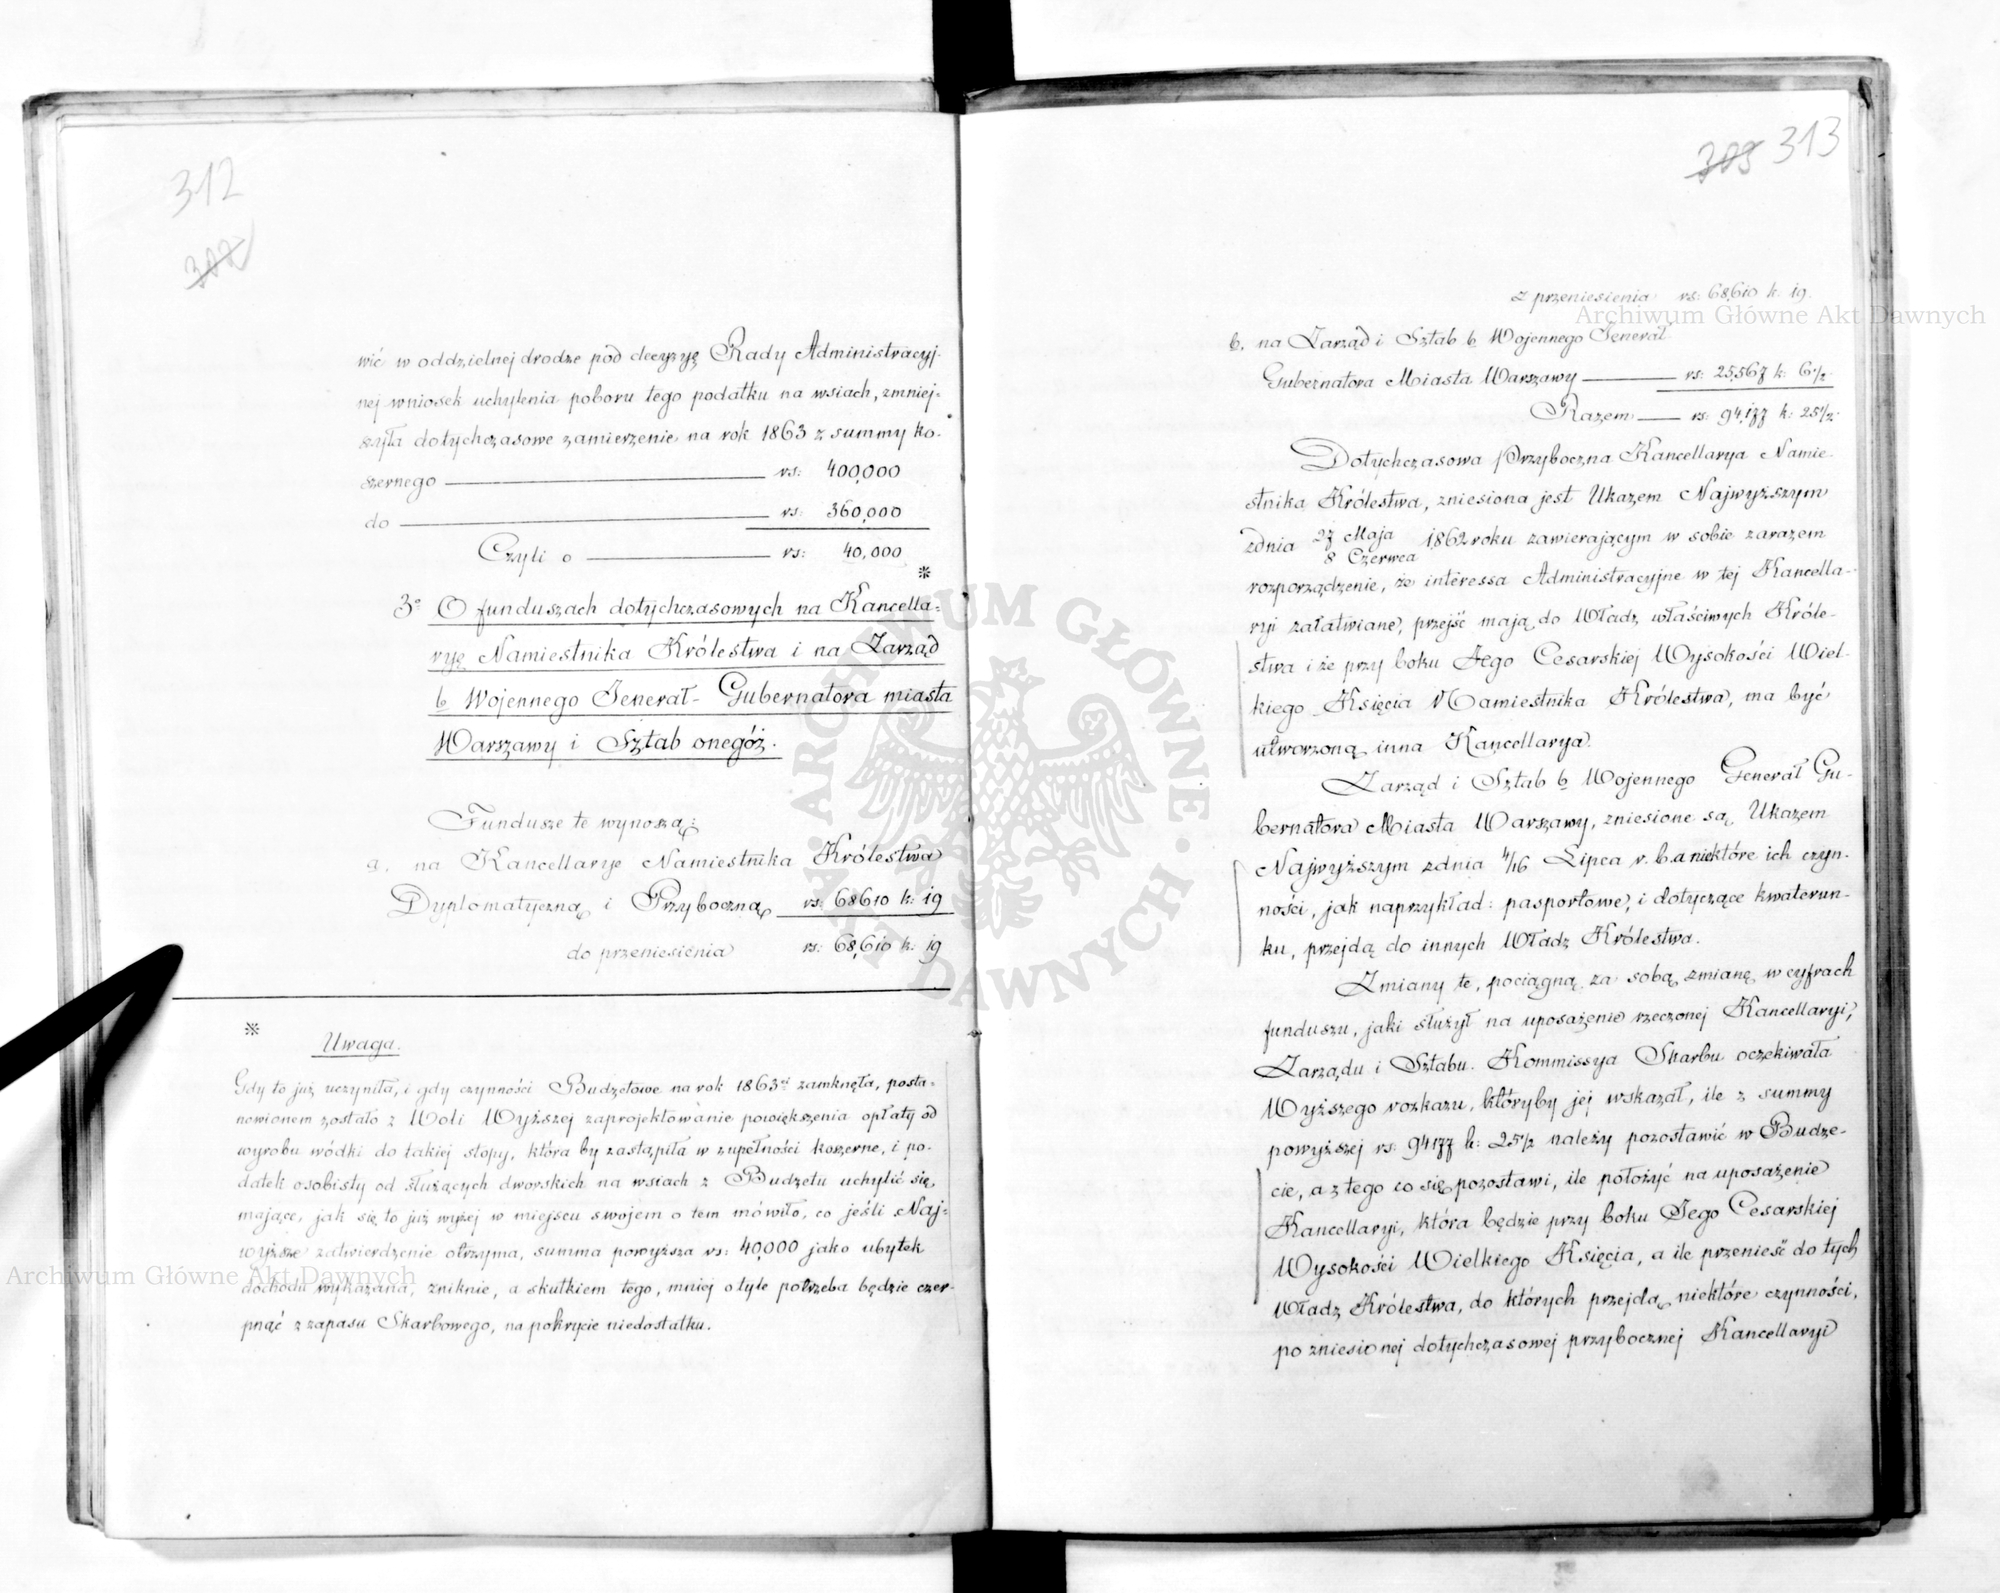 312
302
wić w oddzielnej drodze pod decyzyę Rady Administracyj-
nej wniosek uchylenia poboru tego podatku na wsiach, zmniej-
szyła dotychczasowe zamierzenie na rok 1863 z summy ko-
szernego rs: 400,000
do rs: 360,000
Czyli o rs: 40,000
※
3° O funduszach dotychczasowych na Kancella-
ryę Namiestnika Królestwa i na Zarząd
b Wojennego Jenerał-Gubernatora miasta
Warszawy i Sztab onegóż.
Fundusze te wynoszą:
a, na Kancellarye Namiestnika Królestwa
Dyplomatyczną i Przyboczną rs: 68610 k: 19
do przeniesienia rs: 68,610 k: 19
※
Uwaga.
Gdy to już uczyniła, i gdy czynności Budżetowe na rok 1863 zamknęła, posta-
nowionem zostało z Woli Wyższej zaprojektowanie powiększenia opłaty od
wyrobu wódki do takiej stopy, któraby zastąpiła w zupełności koszerne, i po-
datek osobisty od służących dworskich na wsiach z Budżetu uchylić się
mające, jak się to już wyżej w miejscu swojem o tem mówiło, co jeśli Naj-
wyższe zatwierdzenie otrzyma, summa powyższa rs: 40,000 jako ubytek
dochodu wykazana, zniknie, a skutkiem tego, mniej o tyle potrzeba będzie czer-
pnąć z zapasu Skarbowego, na pokrycie niedostatku.
303 313
z przeniesienia rs: 68,610 k. 19.
b, na Zarząd i Sztab b Wojennego Jenerał
Gubernatora Miasta Warszawy rs: 25,567 k: 6½
Razem rs: 94,177 k: 25½
Dotychczasowa Przyboczna Kancellarya Namie-
stnika Królestwa, zniesiona jest Ukazem Najwyższym
z dnia 27 Maja / 8 Czerwca 1862 roku zawierającym w sobie zarazem
rozporządzenie, że interessa Administracyjne w tej Kancella-
ryi załatwiane, przejść mają do Władz właściwych Króle-
stwa i że przy boku Jego Cesarskiej Wysokości Wiel-
kiego Księcia Namiestnika Królestwa, ma być
utworzoną inna Kancellarya.
Zarząd i Sztab b Wojennego Generał Gu-
bernatora Miasta Warszawy, zniesione są Ukazem
Najwyższym z dnia 4/16 Lipca r. b. a niektóre ich czyn-
ności, jak naprzykład: pasportowe, i dotyczące kwaterun-
ku, przejdą do innych Władz Królestwa.
Zmiany te, pociągną za sobą zmianę w cyfrach
funduszu, jaki służył na uposażenie rzeczonej Kancellaryi,
Zarządu i Sztabu. Kommissya Skarbu oczekiwała
Wyższego rozkazu, któryby jej wskazał, ile z summy
powyższej rs: 94177 k: 25½ należy pozostawić w Budże-
cie, a z tego co się pozostawi, ile położyć na uposażenie
Kancellaryi, która będzie przy boku Jego Cesarskiej
Wysokości Wielkiego Księcia, a ile przenieść do tych
Władz Królestwa, do których przejdą niektóre czynności,
po zniesionej dotychczasowej przybocznej Kancellaryi
Archiwum Główne Akt Dawnych
Archiwum Główne Akt Dawnych
ARCHIWUM GŁÓWNE AKT DAWNYCH